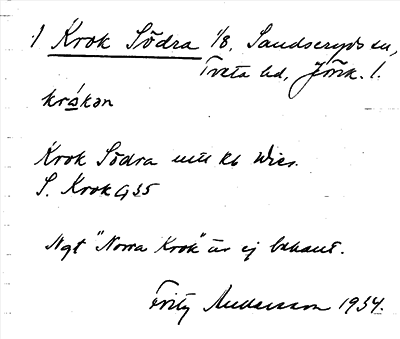 :/ Krok Södra 1/8, Sandseryds sn,
Tveta hd, Jönk. l.
krɔ́kən
Krok Södra mtl kb Wier.
S. Krok G 35
Ngt "Norra Krok" är ej bekant.
Fritz Andersson 1934.